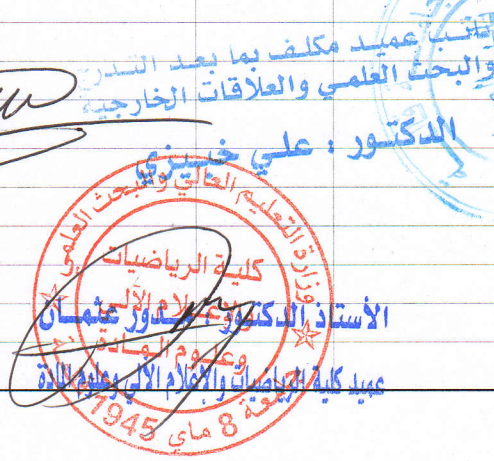 نائب عميد مكلف بما بعد التدرج
والبحث العلمي والعلاقات الخارجية
الدكتور : علي خبيزي
وزارة التعليم العالي والبحث العلمي
كلية الرياضيات
والإعلام الآلي
وعلوم المادة
جامعة 8 ماي 1945
الأستاذ الدكتور عثمان
عميد كلية الرياضيات والإعلام الآلي وعلوم المادة